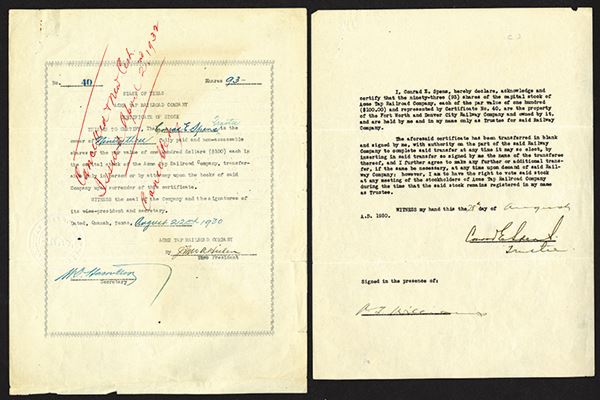 No. 40 Shares 93-
STATE OF TEXAS
ACME TAP RAILROAD COMPANY
CERTIFICATE OF STOCK
THIS IS TO CERTIFY, That Conrad E. Spens, Trustee is the
owner of Ninety three fully paid and nonassessable
shares of the par value of one hundred dollars ($100) each in
the capital stock of the Acme Tap Railroad Company, transfer-
able in person or by attorney upon the books of said
Company upon surrender of this certificate.
WITNESS the seal of the Company and the signatures of
its vice-president and secretary.
Dated, Quanah, Texas, August 22nd 1930
ACME TAP RAILROAD COMPANY
By
Vice President
Secretary
Cancelled & new Cert.
issued April 2nd 1932
I, Conrad E. Spens, hereby declare, acknowledge and
certify that the ninety-three (93) shares of the capital stock of
Acme Tap Railroad Company, each of the par value of one hundred
($100.00) and represented by Certificate No. 40, are the property
of the Fort Worth and Denver City Railway Company and owned by it,
and are held by me and in my name only as Trustee for said Railway
Company.
The aforesaid certificate has been transferred in blank
and signed by me, with authority on the part of the said Railway
Company to complete said transfer at any time it may so elect, by
inserting in said transfer so signed by me the name of the transferee
thereof, and I further agree to make any further or additional trans-
fer, if the same be necessary, at any time upon demand of said Rail-
way Company; however, I am to have the right to vote said stock
at any meeting of the stockholders of Acme Tap Railroad Company
during the time that the said stock remains registered in my name
as Trustee.
WITNESS my hand this 28th day of August
A.D. 1930.
Conrad E. Spens
Trustee
Signed in the presence of: